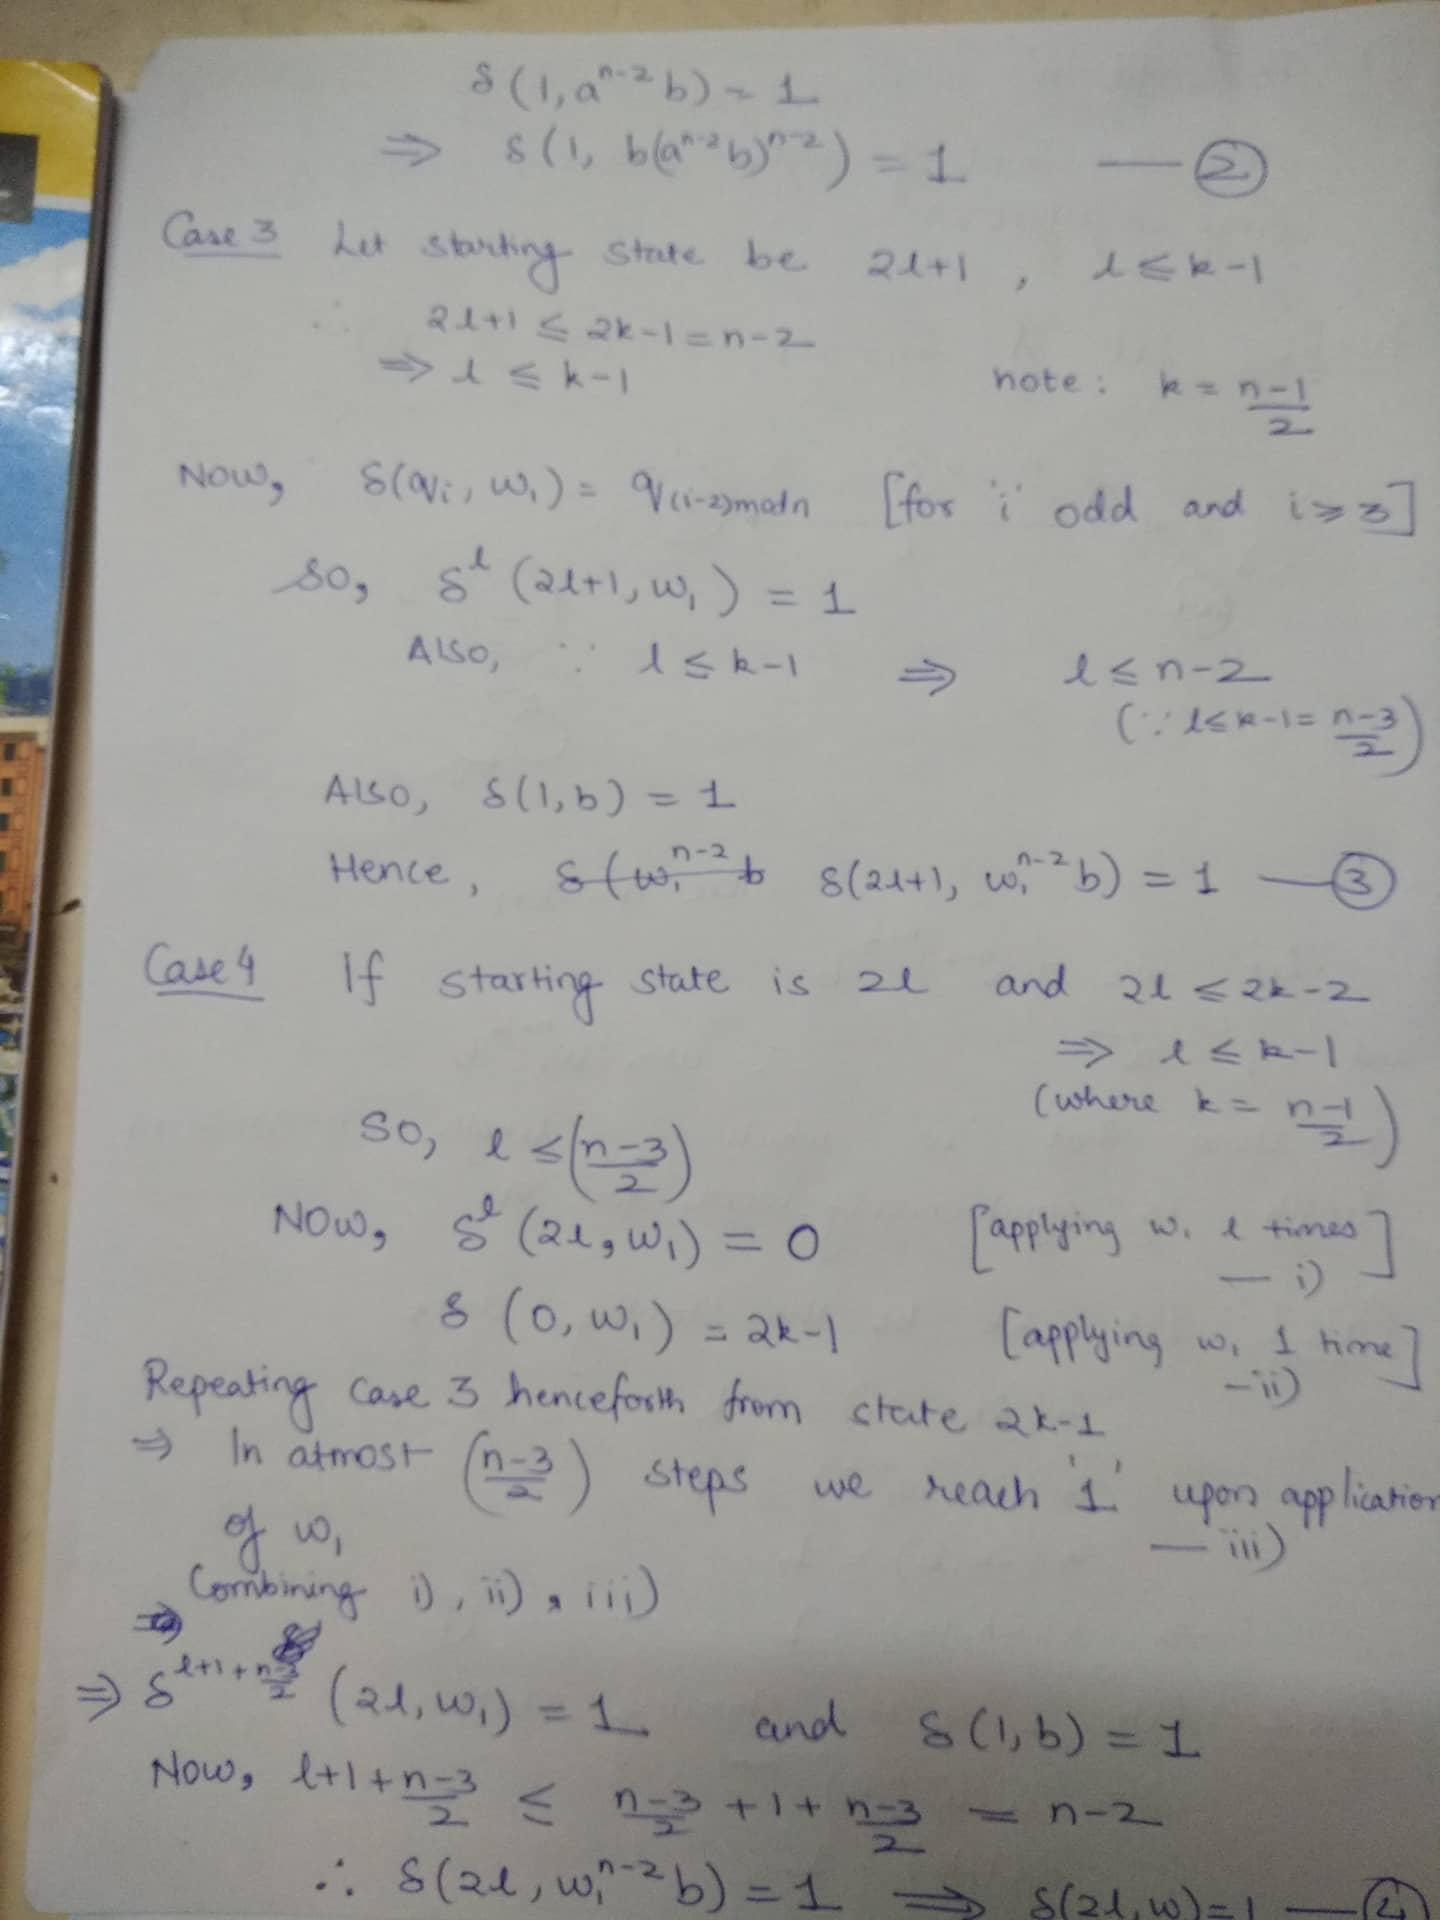 δ(1, a^{n-2} b) = 1
⇒ δ(1, b(a^{n-2} b)^{n-2}) = 1 — ②
Case 3 Let starting state be 2l+1 , l ≤ k-1
∴ 2l+1 ≤ 2k-1 = n-2
⇒ l ≤ k-1 note: k = \frac{n-1}{2}
Now, δ(q_i, w_1) = q_{(i-2) mod n} [for 'i' odd and i ≥ 3]
So, δ^l (2l+1, w_1) = 1
Also, ∵ l ≤ k-1 ⇒ l ≤ n-2
(∵ l ≤ k-1 = \frac{n-3}{2})
Also, δ(1, b) = 1
Hence, δ(w_1^{n-2} b δ(2l+1, w_1^{n-2} b) = 1 — ③
Case 4 If starting state is 2l and 2l ≤ 2k-2
⇒ l ≤ k-1
(where k = \frac{n-1}{2})
So, l ≤ (\frac{n-3}{2})
Now, δ^l (2l, w_1) = 0 [applying w_1 l times] — i)
δ (0, w_1) = 2k-1 [applying w_1 1 time] — ii)
Repeating case 3 henceforth from state 2k-1
⇒ In atmost (\frac{n-3}{2}) steps we reach '1' upon application
of w_1 — iii)
Combining i), ii), iii)
⇒ δ^{l+1+\frac{n-3}{2}} (2l, w_1) = 1 and δ(1, b) = 1
Now, l+1+\frac{n-3}{2} ≤ \frac{n-3}{2} + 1 + \frac{n-3}{2} = n-2
∴ δ(2l, w_1^{n-2} b) = 1 ⇒ δ(2l, w) = 1 — ④